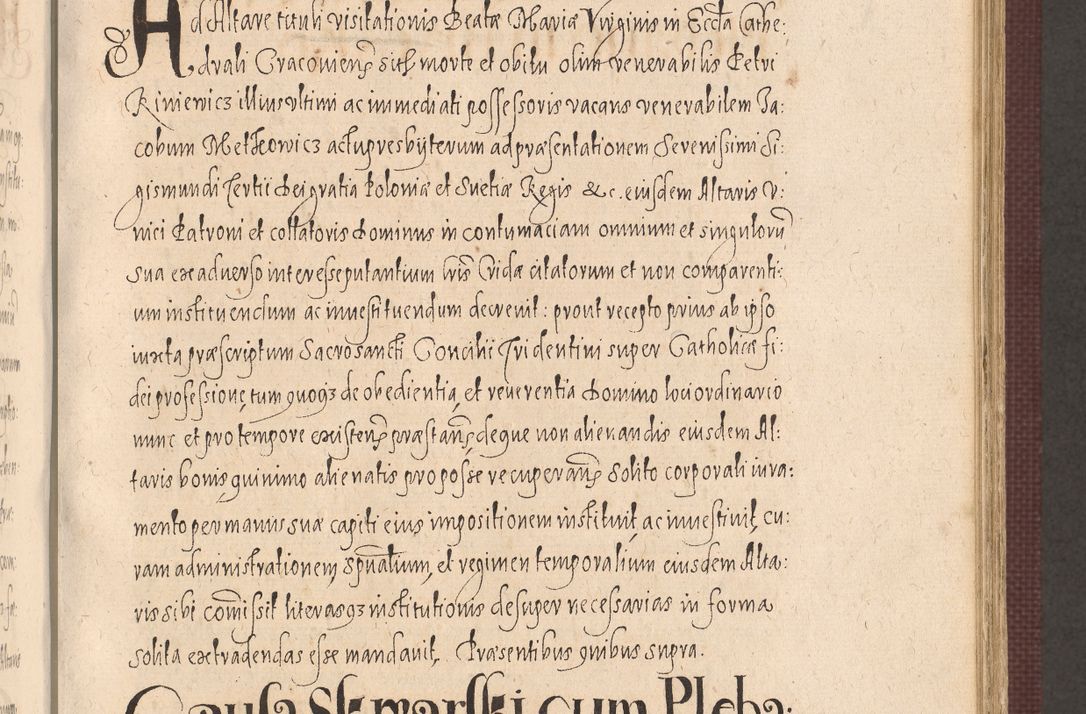 Ad Altare tituli visitationis Beatæ Mariæ Virginis in Eccła Cathe:
drali Cracovieñ sitħ morte et obitu olim venerabilis Petri
Kiniewicz illius ultimi ac immediati possessoris vacans venerabilem Ja:
cobum Metkowicz actu presbÿterum ad præsentationem Serenissimi Si:
gismundi Tertii Dei gratia Poloniæ et Suetiæ Regis &c. eiusdem Altaris V:
nici Patroni et collatoris Dominus in contumaciam omnium et singulorũ
sua ex adverso interesse putantium citatorum et non comparenti:
um instituendum ac investituendum decrevit: prout recepto prius ab ipso
iuxta præscriptum Sacrosancti Concilii Tridentini super Catholicæ fi:
dei professione, tum quoqz de obedientia, et reverentia Domino loci ordinario
nunc et pro tempore existeñ præstañ, deque non alienandis eiusdem Al:
taris bonis, quinimo alienatis pro posse recuperañ solito corporali iura:
mento per manus suæ capiti eius impositionem instituit, ac investivit, cu:
ram administrationem, spũalium, et regimen temporalium eiusdem Alta:
ris sibi comĩssit literasqz institutionis desuper necessarias in forma
solita extradendas esse mandavit. Præsentibus quibus supra.
Causa Skwarski cum Pleba: